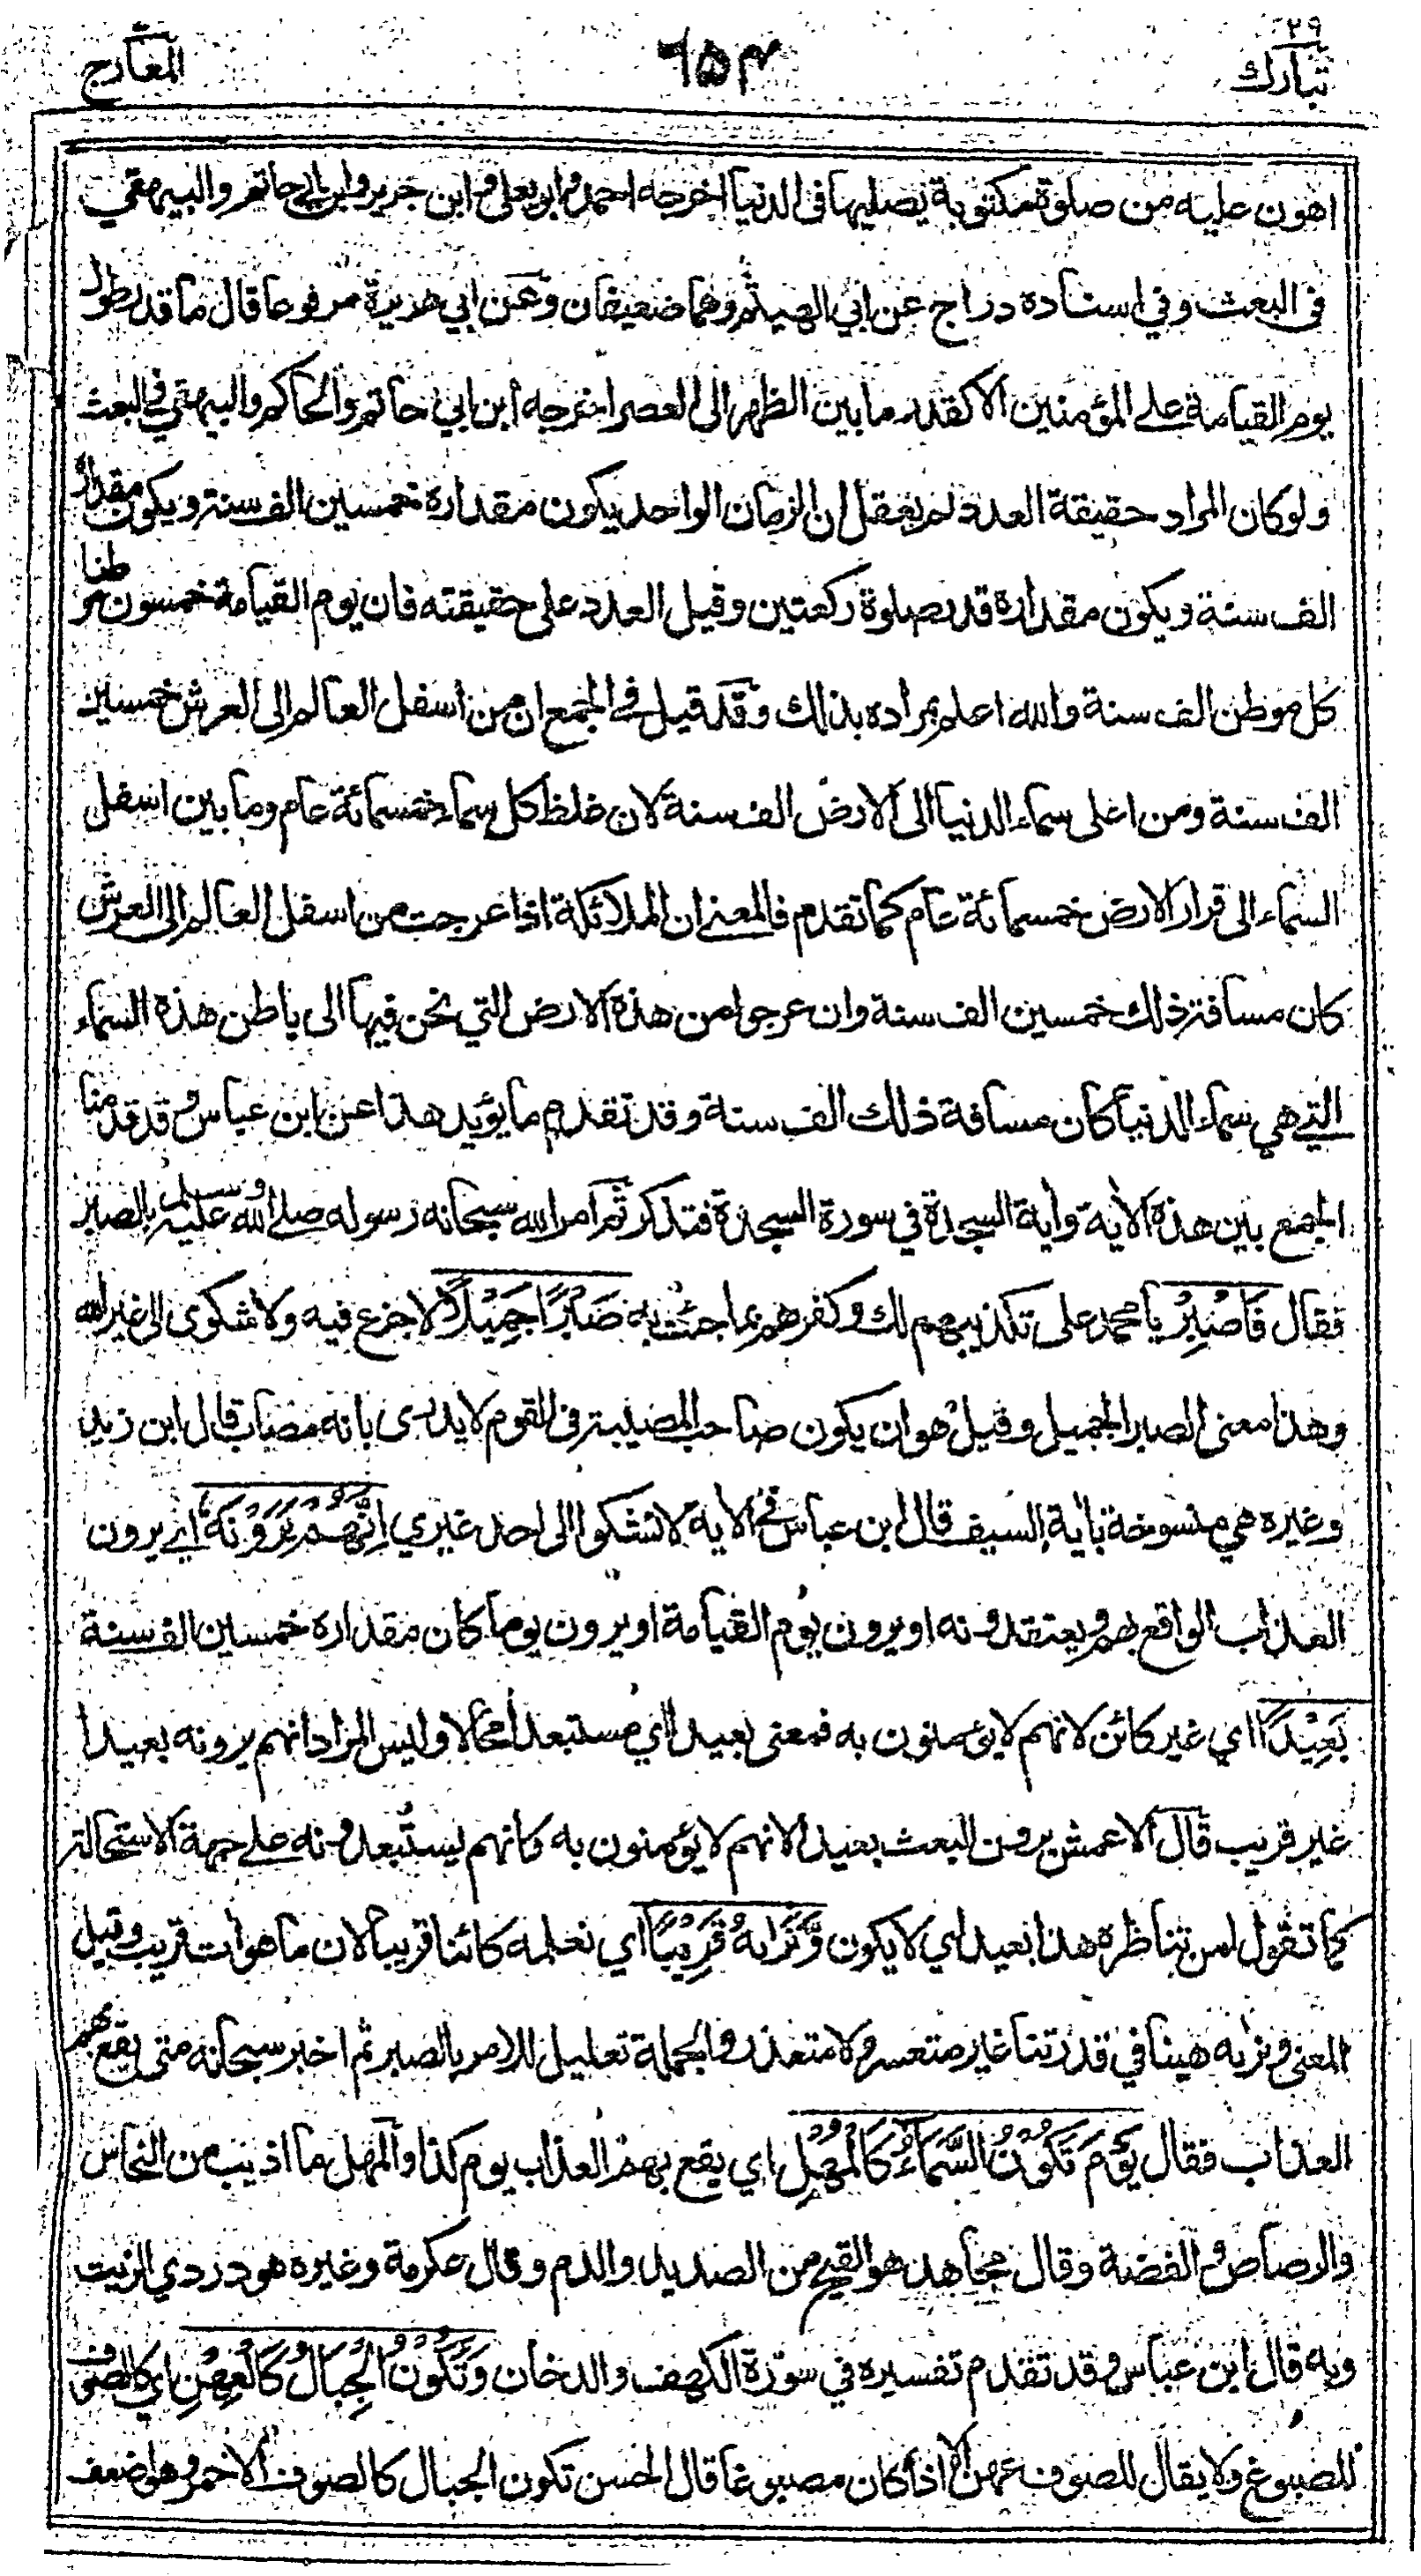 تبارك ٢٩
٦٥٣
المعارج
اهون عليه من صلوة مكتوبة يصليها فى الدنيا اخرجه احمد وابو يعلى وابن جرير وابن ابي حاتم والبيهقي
فى البعث وفي اسناده دراج عن ابي الهيثم وهما ضعيفان وعن ابي هريرة مرفوعا قال ما قدر طول
يوم القيامة على المؤمنين الا كقدر ما بين الظهر الى العصر اخرجه ابن ابي حاتم والحاكم والبيهقي في البعث
ولو كان المراد حقيقة العدد لم يعقل ان الزمان الواحد يكون مقداره خمسين الف سنة ويكون مقداره
الف سنة ويكون مقداره قدر صلوة ركعتين وقيل العدد على حقيقته فان يوم القيامة خمسون موطنا
كل موطن الف سنة والله اعلم بمراده بذلك وقد قيل في الجمع ان من اسفل العالم الى العرش خمسين
الف سنة ومن اعلى سماء الدنيا الى الارض الف سنة لان غلظ كل سماء خمسمائة عام وما بين اسفل
السماء الى قرار الارض خمسمائة عام كما تقدم فالمعنى ان الملائكة اذا عرجت من اسفل العالم الى العرش
كان مسافة ذلك خمسين الف سنة وان عرجوا من هذه الارض التي نحن فيها الى باطن هذه السماء
التي هي سماء الدنيا كان مسافة ذلك الف سنة وقد تقدم ما يؤيد هذا عن ابن عباس وقد قدمنا
الجمع بين هذه الأية وأية السجدة في سورة السجدة فتذكر ثم امر الله سبحانه رسوله صلى الله عليه وسلم بالصبر
فقال فَاصْبِرْ يا محمد على تكذيبهم لك وكفرهم بما جئت به صَبْرًا جَمِيْلًا لا جزع فيه ولا شكوى الى غير الله
وهذا معنى الصبر الجميل وقيل هو ان يكون صاحب المصيبة فى القوم لا يدرى بانه مصاب قال ابن زيد
وغيره هي منسوخة بأية السيف قال ابن عباس في الأية لا تشكوا الى احد غيري اِنَّهُمْ يَرَوْنَهٗ اي يرون
العذاب الواقع بهم ويعتقدونه او يرون يوم القيامة او يرون يوما كان مقداره خمسين الف سنة
بَعِيْدًا اي غير كائن لانهم لا يؤمنون به فمعنى بعيدا اي مستبعدا محالا وليس المراد انهم يرونه بعيدا
غير قريب قال الاعمش يرون البعث بعيدا لانهم لا يؤمنون به كانهم يستبعدونه على جهة الاستحالة
كما تقول لمن تناظره هذا بعيد اي لا يكون وَّنَرَاهُ قَرِيْبًا اي نعلمه كائنا قريبا لان ما هو أت قريب وقيل
المعنى ونراه هينا في قدرتنا غير متعسر ولا متعذر والجملة تعليل للامر بالصبر ثم اخبر سبحانه متى يقع بهم
العذاب فقال يَوْمَ تَكُوْنُ السَّمَاءُ كَالْمُهْلِ اي يقع بهم العذاب يوم كذا والمهل ما اذيب من النحاس
والرصاص والفضة وقال مجاهد هو القيح من الصديد والدم وقال عكرمة وغيره هو دردي الزيت
وبه قال ابن عباس وقد تقدم تفسيره في سورة الكهف والدخان وَتَكُوْنُ الْجِبَالُ كَالْعِهْنِ اي كالصوف
المصبوغ ولا يقال للصوف عهن الا اذا كان مصبوغا قال الحسن تكون الجبال كالصوف الاحمر وهو اضعف